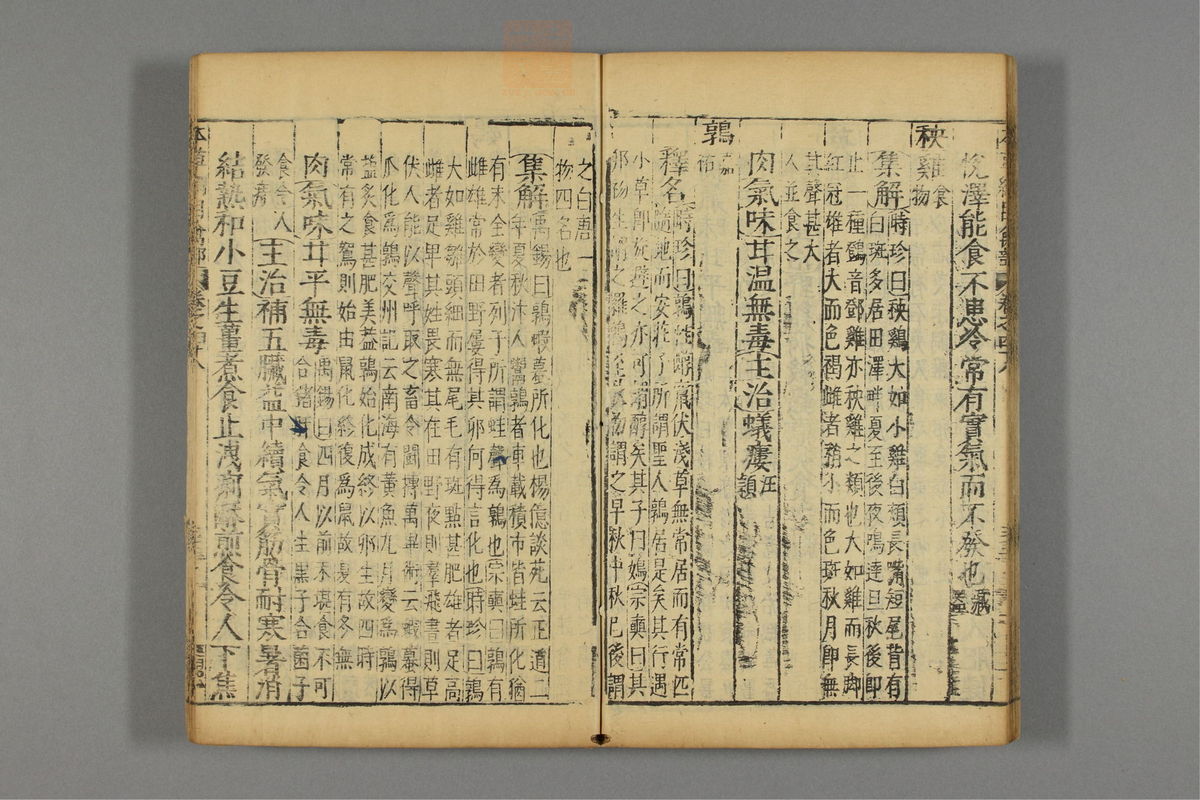 悅澤能食不患冷常有實氣而不發也
秧雞食物
集解時珍曰秧雞大如小雞白頰長嘴短尾背有
白斑多居田澤畔夏至後夜鳴達旦秋後即
止一種鷄音鄧雞亦秧雞之類也大如雞而長脚
紅冠雄者大而色褐雌者稍小而色斑秋月即無
其聲甚大
人並食之
肉氣味甘溫無毒主治蟻瘻汪穎
鶉嘉祐
釋名時珍曰鶉性醇竄伏淺草無常居而有常匹
隨地而安莊子所謂聖人鶉居是矣其行遇
小草即旋避之亦可謂醇矣其子曰鳼宗奭曰其
卵初生謂之羅鶉至初秋謂之早秋中秋已後謂
之白唐一
物四名也
集解禹錫曰鶉蝦蟇所化也楊億談苑云至道二
年夏秋汴人鬻鶉者車載積市皆蛙所化猶
有未全變者列子所謂蛙聲為鶉也宗奭曰鶉有
雌雄常於田野屢得其卵何得言化也時珍曰鶉
大如雞雛頭細而無尾毛有斑點甚肥雄者足高
雌者足卑其姓畏寒其在田野夜則羣飛晝則草
伏人能以聲呼取之畜令鬪搏萬畢術云蟣蟇得
瓜化為鶉交州記云南海有黃魚九月變為鶉以
鹽炙食甚肥美蓋鶉始化成終以卵生故四時
常有之鴽則始由鼠化終復為鼠故夏有冬無
肉氣味甘平無毒禹錫曰四月以前未堪食不可
合猪肝食令人生黑子合菌子
食令人
發痔
主治補五臟益中續氣實筋骨耐寒暑消
結熱和小豆生薑煮食止洩痢酥煎食令人下焦